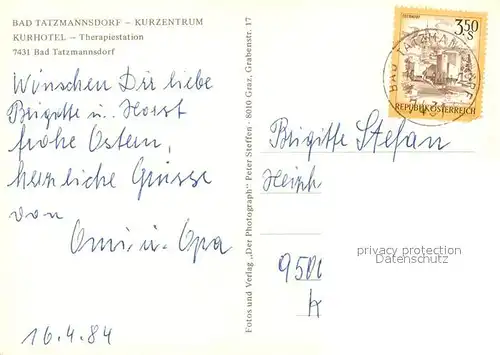 BAD TATZMANNSDORF – KURZENTRUM
KURHOTEL – Therapiestation
7431 Bad Tatzmannsdorf
Wünschen Dir liebe
Brigitte u. Horst
frohe Ostern,
herzliche Grüsse
von
Omi u. Opa
16.4.84
Fotos und Verlag „Der Photograph" Peter Steffen - 8010 Graz, Grabenstr. 17
3,50
S
REPUBLIK ÖSTERREICH
BAD TATZMANNSDORF
Brigitte Stefan
950
privacy protection
Datenschutz